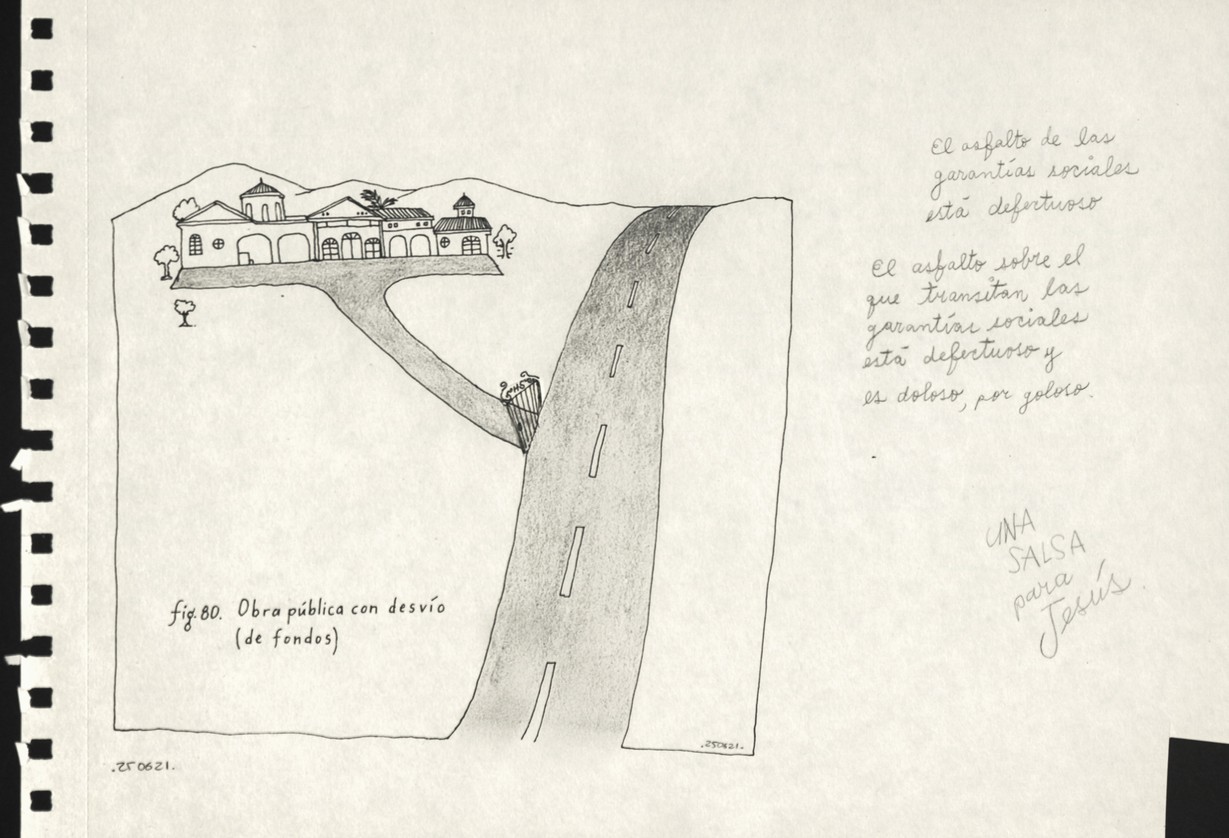 El asfalto de las
garantías sociales
está defectuoso
El asfalto sobre el
que transitan las
garantías sociales
está defectuoso y
es doloso, por goloso.
UNA
SALSA
para
Jesús.
fig. 80. Obra pública con desvío
(de fondos)
.250621.
.250621.